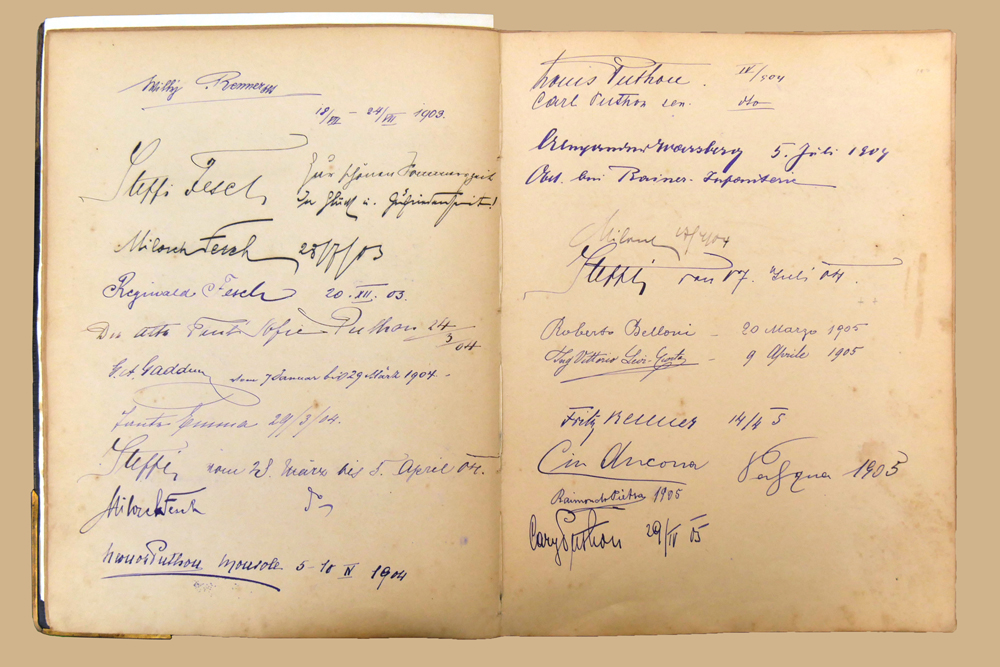 Willy Renner
18/VII – 24/VII 1903.
Steffi Fesch
Zur schönen Sommerzeit
In Glück u. Zufriedenheit!
Milosch Fesch 28/7/03
Reginald Fesch 20. XII. 03.
Die alte Tante Sofie Puthon 24/3 04
G. A. Gaddum vom 7 Januar bis 29 März 1904 –
Tante Emma 29/3/04.
Steffi vom 28. März bis 5. April 04.
Milosch Fesch do
Puthon 5–10 IV 1904
Louis Puthon. IV/904
Carl Puthon sen. dto
Alexander Warsberg 5. Juli 1904
Obst. bei Rainer-Infanterie
Milosch
Steffi von 17. Juli 04.
Roberto Belloni – 20 Marzo 1905
Ing Vittorio Levi – 9 Aprile 1905
Fritz Renner 14/4 5
Ancona Pasqua 1905
Raimondo Pietra 1905
Cary Puthon 29/IV 05